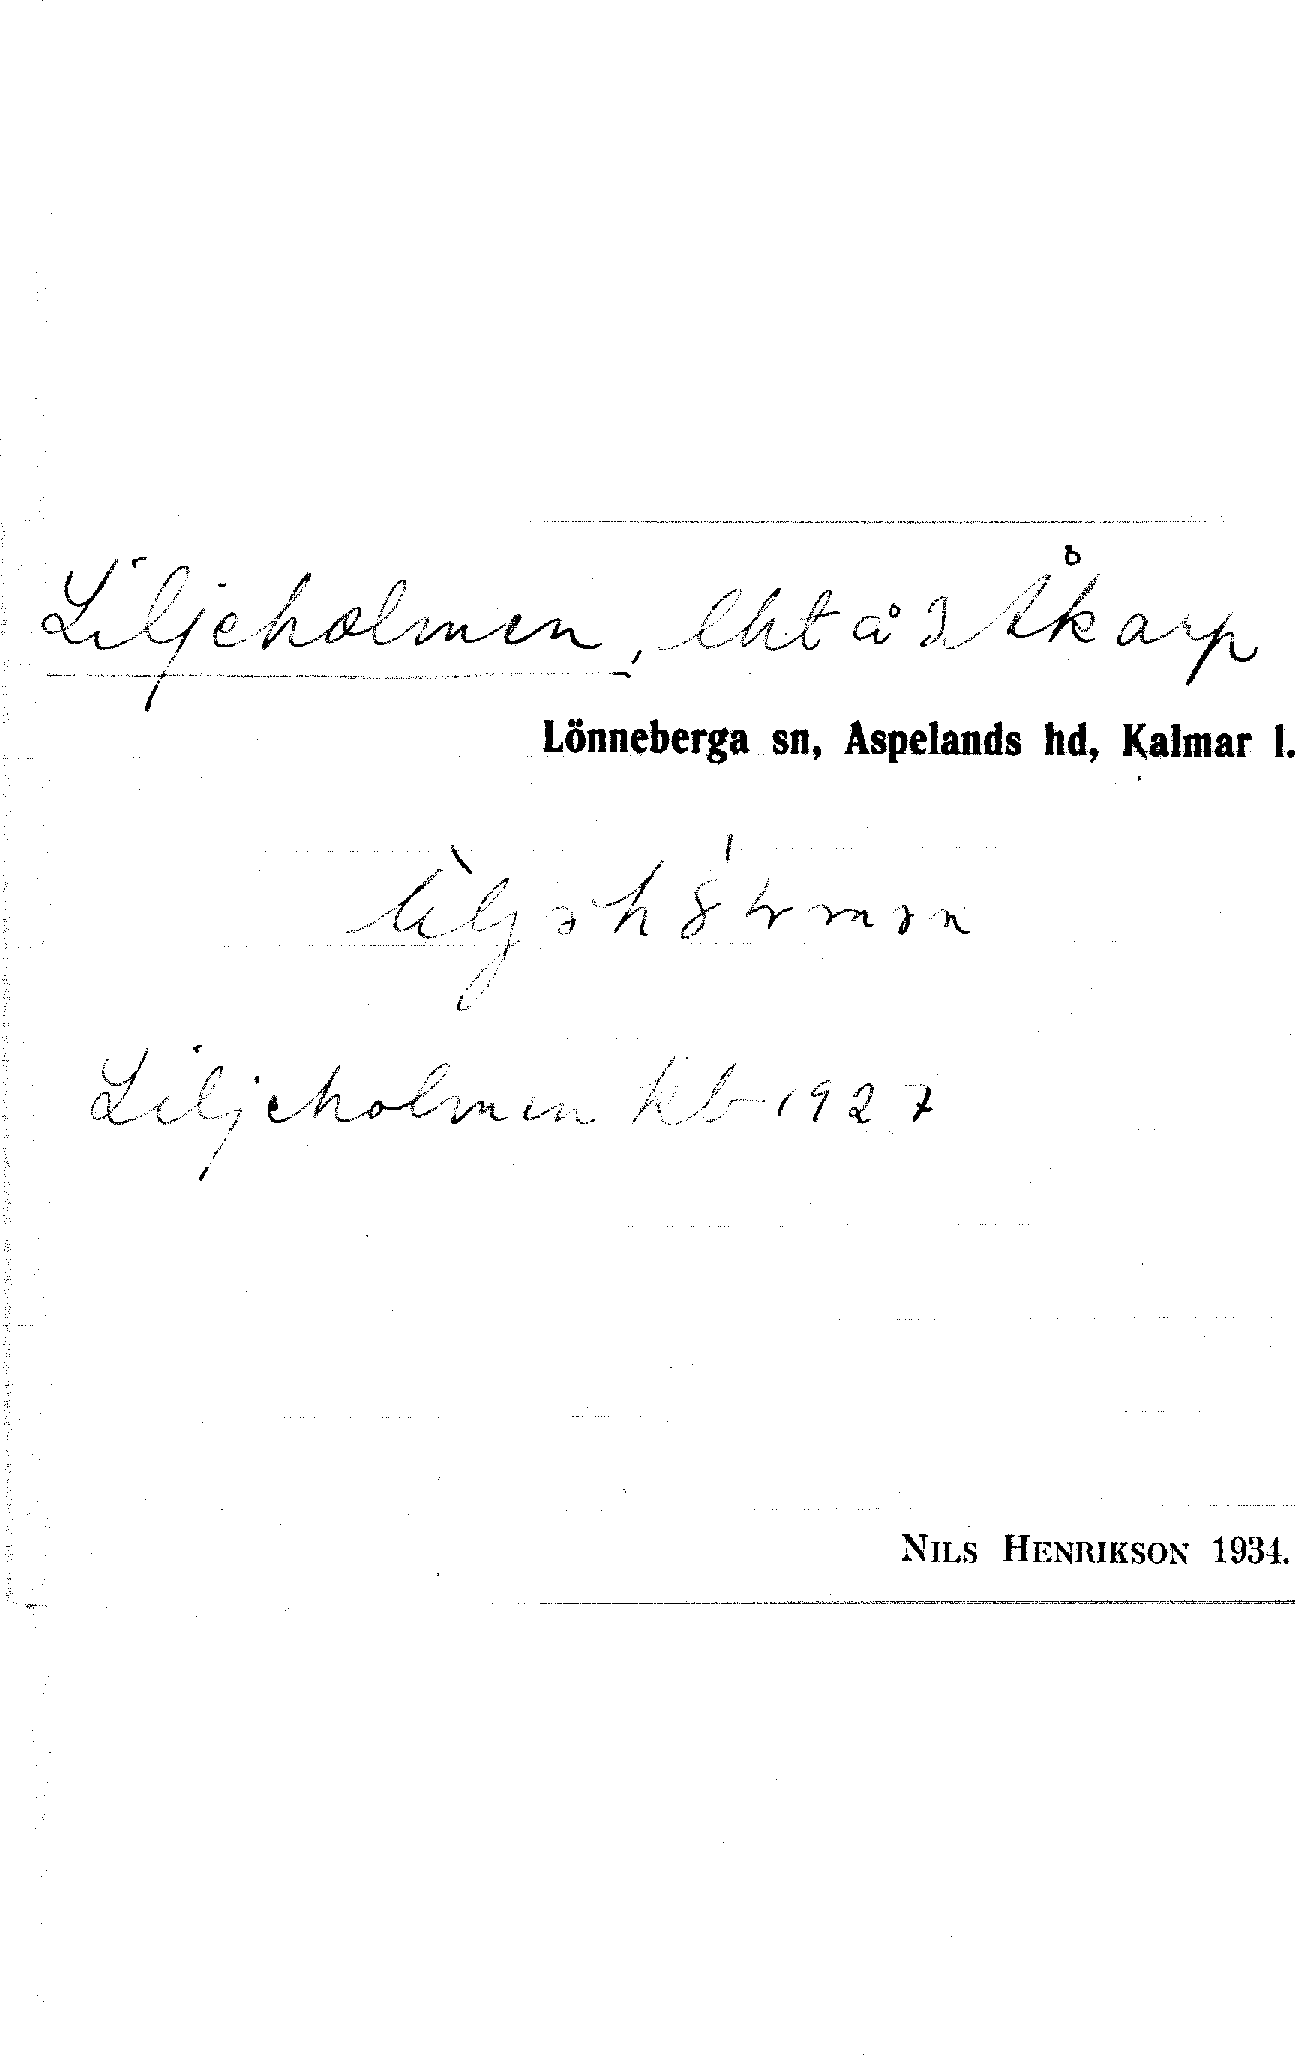 Liljeholmen, lht å 2 Åkarp
Lönneberga sn, Aspelands hd, Kalmar l.
Liljeholmen kb 1927
NILS HENRIKSON 1934.